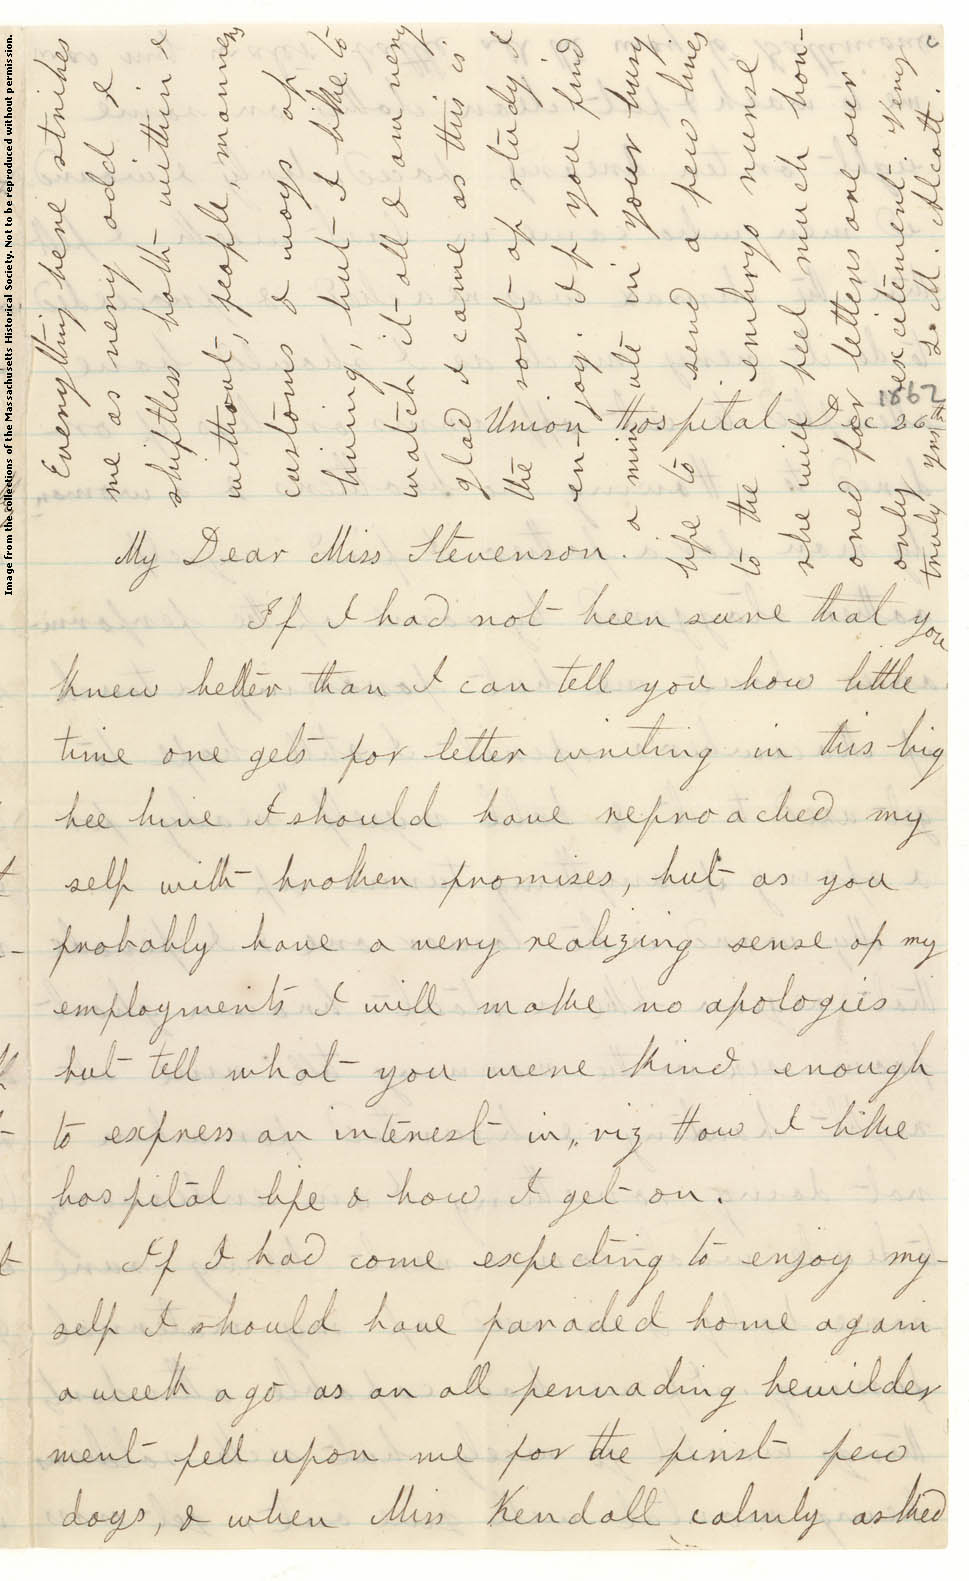 Image from the collections of the Massachusetts Historical Society. Not to be reproduced without permission.
1862
Union Hospital Dec 26th
My Dear Miss Stevenson.
If I had not been sure that you
knew better than I can tell you how little
time one gets for letter writing in this big
bee hive I should have reproached my
self with broken promises, but as you
probably have a very realizing sense of my
employments I will make no apologies
but tell what you were kind enough
to express an interest in, viz How I like
hospital life & how I get on.
If I had come expecting to enjoy my-
self I should have paraded home again
a week ago as an all pervading bewilder
ment fell upon me for the first few
days, & when Miss Kendall calmly asked
Everything here strikes
me as very odd &
shiftless both within &
without, people, manners
customs & ways of
living, but I like to
watch it all & am very
glad I came as this is
the sort of study I
enjoy. If you find
a minute in your busy
life to send a few lines
to the embryo nurse
she will feel much hon-
ored for letters are our
only excitement. Very
truly yrs L. M. Alcott.